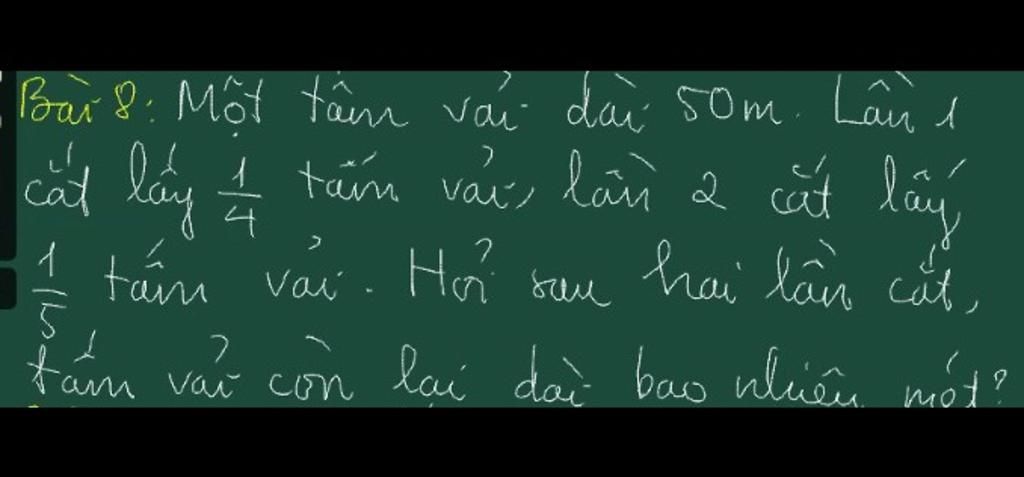 Bài 8: Một tấm vải dài 50m. Lần 1
cắt lấy 1/4 tấm vải, lần 2 cắt lấy
1/5 tấm vải. Hỏi sau hai lần cắt,
tấm vải còn lại dài bao nhiêu mét?